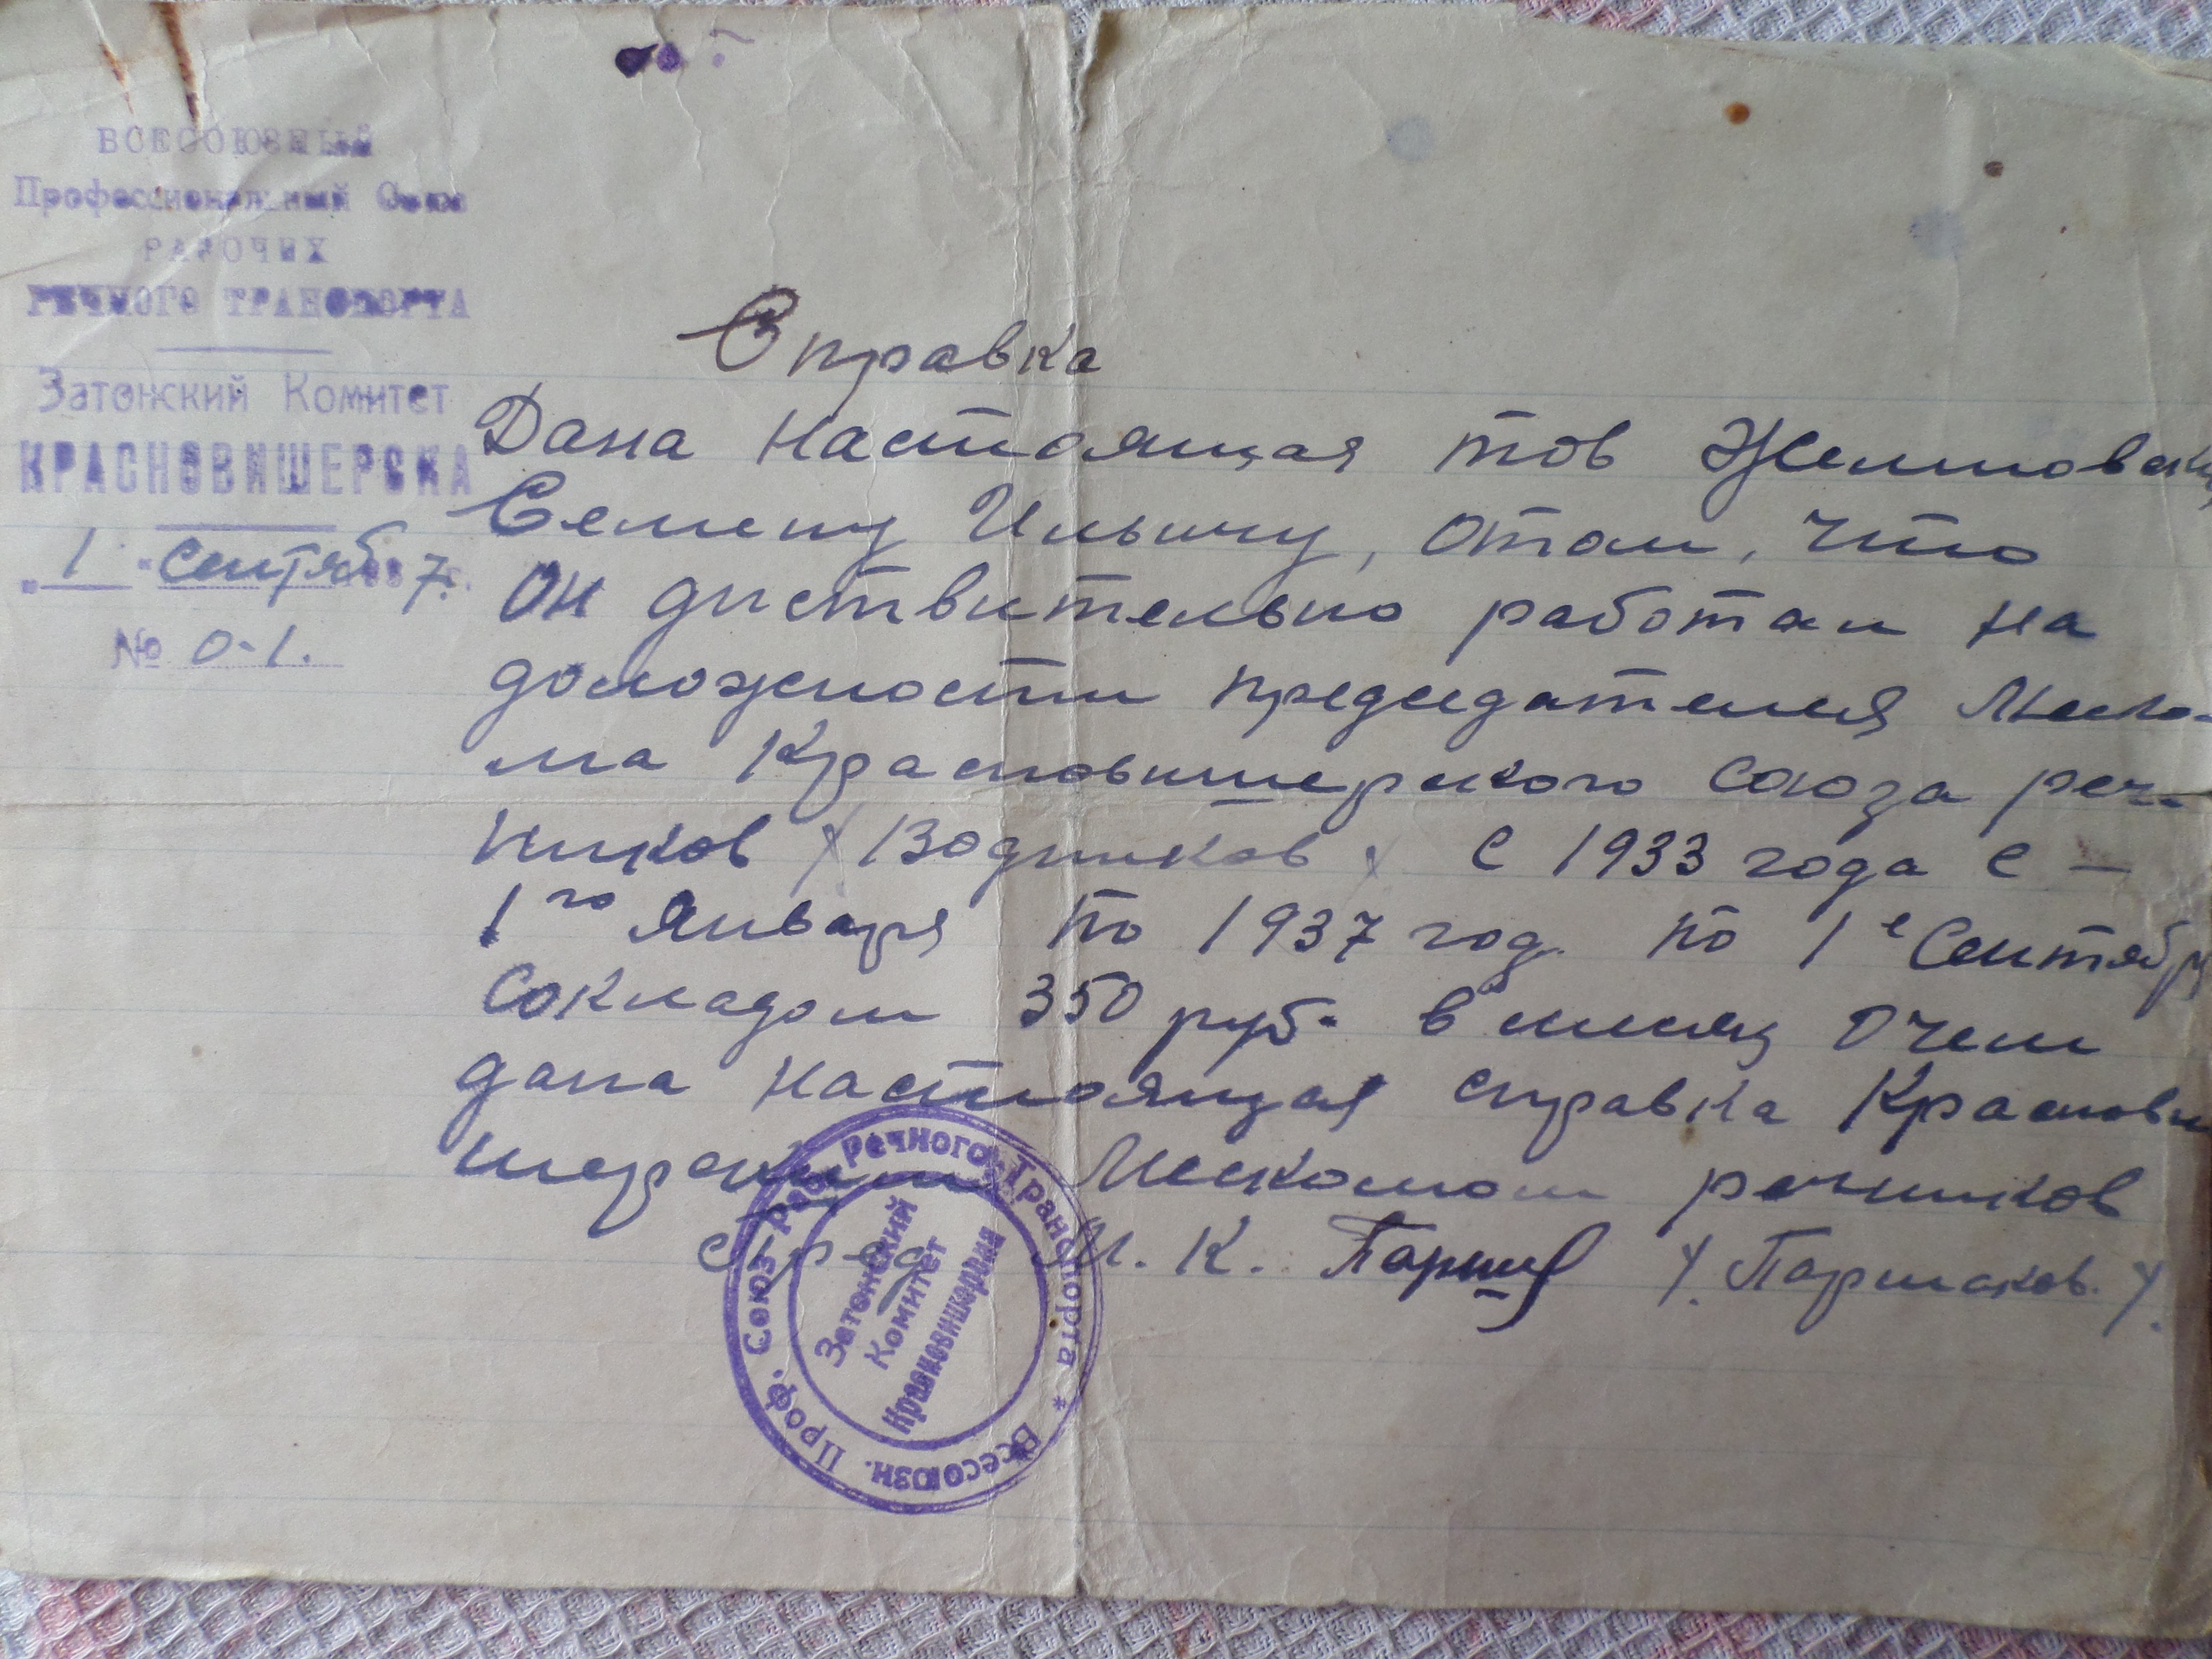 ВСЕСОЮЗНЫЙ
Профессиональный Союз
РАБОЧИХ
РЕЧНОГО ТРАНСПОРТА
Затонский Комитет
КРАСНОВИШЕРСКА
"1" Сентяб 7г.
№ 0-1.
Справка
Дана настоящая тов
Семену Ильичу, отом, что
он диствительно работал на
должности председателя Меско-
ма Красновишерского союза реч-
ников /Водников/ с 1933 года с —
1го Января по 1937 год. по 1е Сентябр
Сокладом 350 руб. в месяц Очем
дана настоящая справка Краснови
шерским Мескомом речников
М. К. /.Паршаков./.
Всесоюзн. Проф. Союз Раб. Речного Транспорта *
Затонский
Комитет
Красновишерска